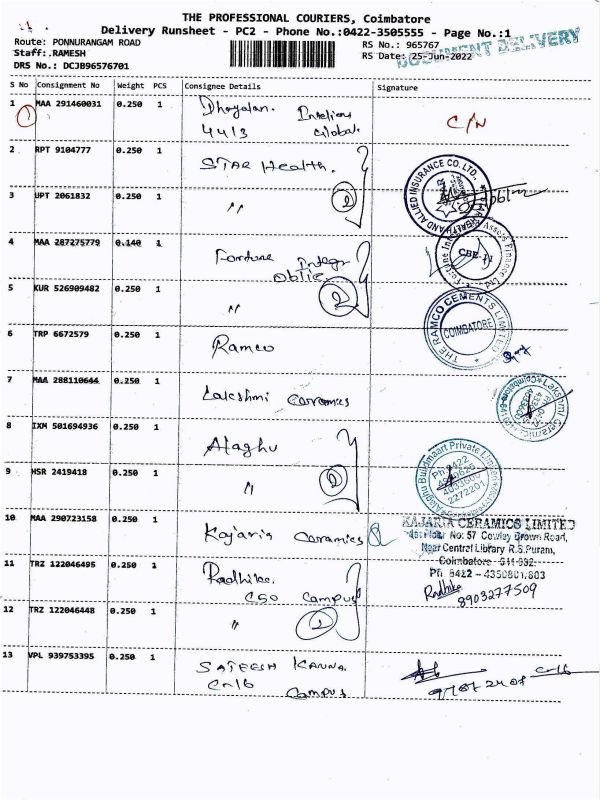 THE PROFESSIONAL COURIERS, Coimbatore
Delivery Runsheet - PC2 - Phone No.:0422-3505555 - Page No.:1
Route: PONNURANGAM ROAD
Staff:.RAMESH
DRS No.: DCJB96576701
RS No.: 965767
RS Date: 25-Jun-2022
DOCUMENT DELIVERY
S No Consignment No Weight PCS Consignee Details Signature
1 MAA 291460031 0.250 1
1
4413 Global. C/N
2 RPT 9104777 0.250 1 STAR Health.
3 UPT 2061832 0.250 1 " 2
4 MAA 287275779 0.140 1 Fortune Integr
5 KUR 526909482 0.250 1 " 2
6 TRP 6672579 0.250 1 Ramco
THE RAMCO CEMENTS LIMITED
COIMBATORE
7 MAA 288110644 0.250 1 Lakshmi Ceramics
8 IXM 501694936 0.250 1 Alaghu
9 HSR 2419418 0.250 1 " 2
Alaghu Buildmaart Private Limited
Ph: 0422
2272201
10 MAA 290723158 0.250 1 Kajaria Ceramics
KAJARIA CERAMICS LIMITED
No: 57 Cowley Brown Road,
Near Central Library R.S.Puram,
Coimbatore
Ph 0422 - 4350801.803
11 TRZ 122046495 0.250 1 Radhika.
C50 Campus
Radhika
8903277509
12 TRZ 122046448 0.250 1 " 2
13 VPL 939753395 0.250 1 SATEESH KANNA
C-16 Campus
C-16